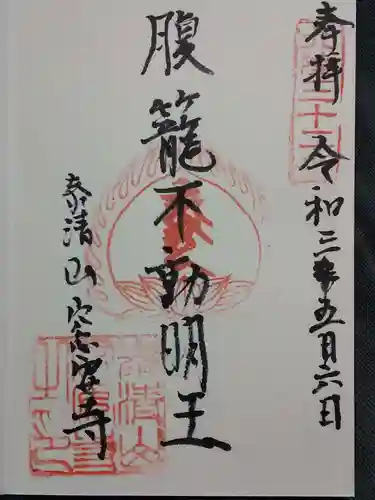 奉拝 令和三年五月六日
腹籠不動明王
泰清山 窓安寺